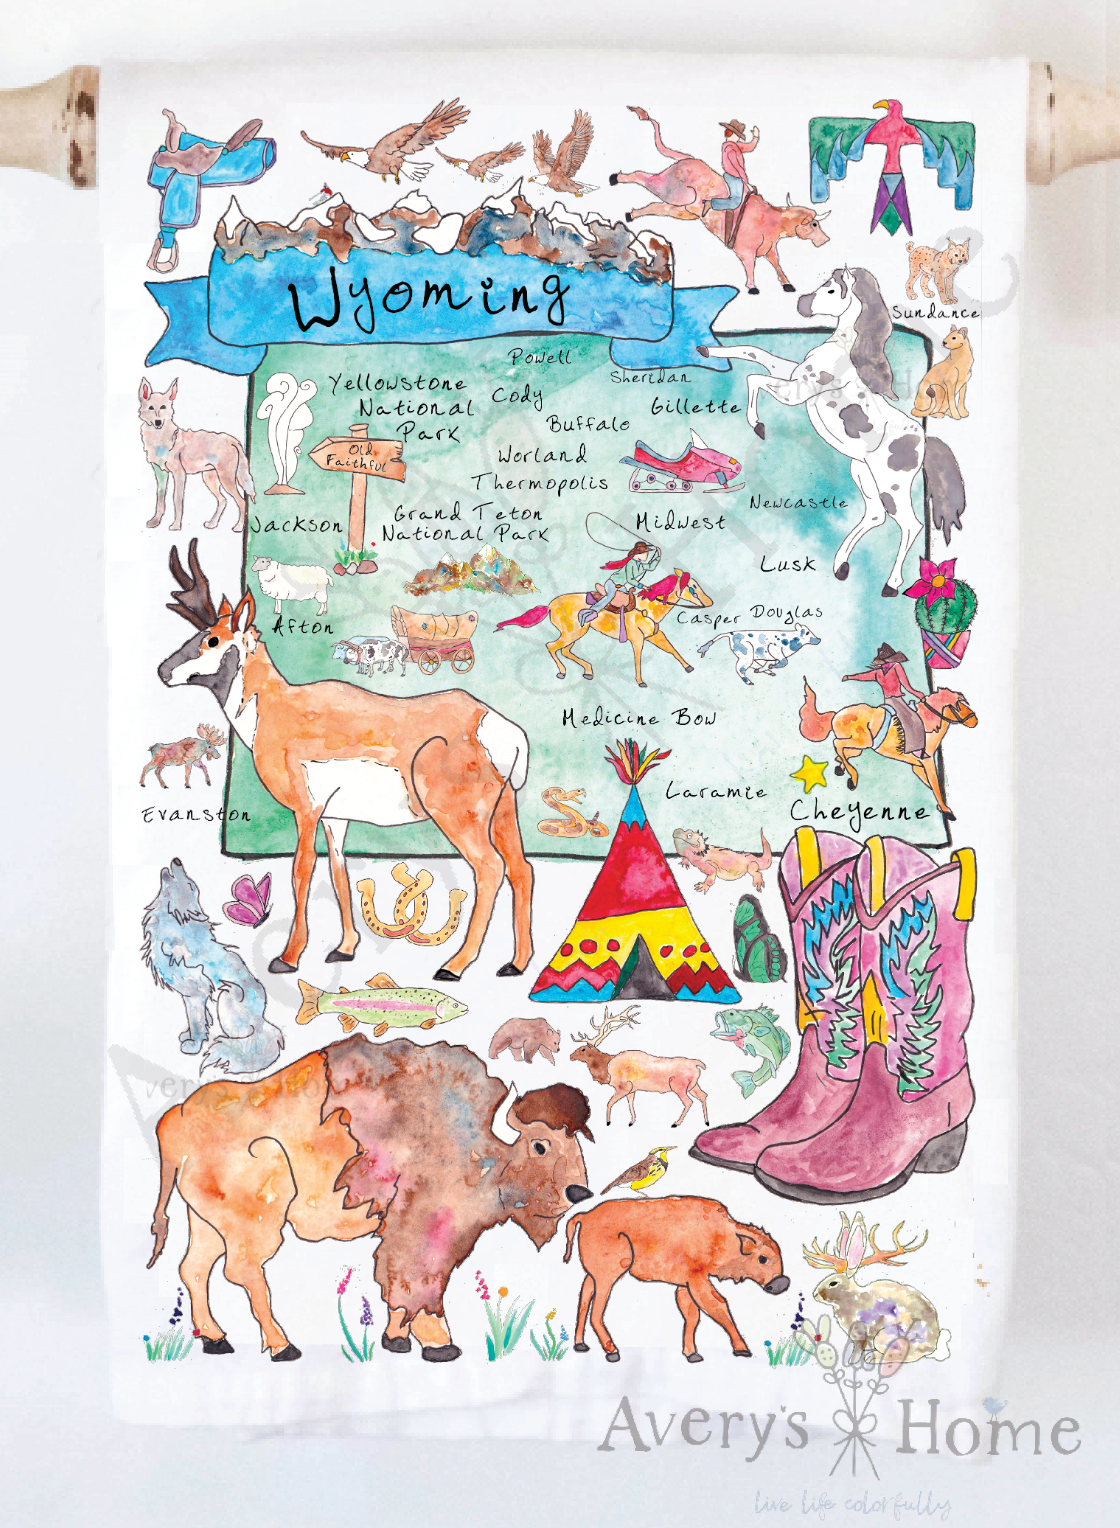 Wyoming
Powell
Sheridan
Sundance
Yellowstone
National
Park
Cody
Gillette
Buffalo
Old
Faithful
Worland
Thermopolis
Newcastle
Jackson
Grand Teton
National Park
Midwest
Lusk
Afton
Casper
Douglas
Medicine Bow
Laramie
Cheyenne
Evanston
Avery's Home
live life colorfully